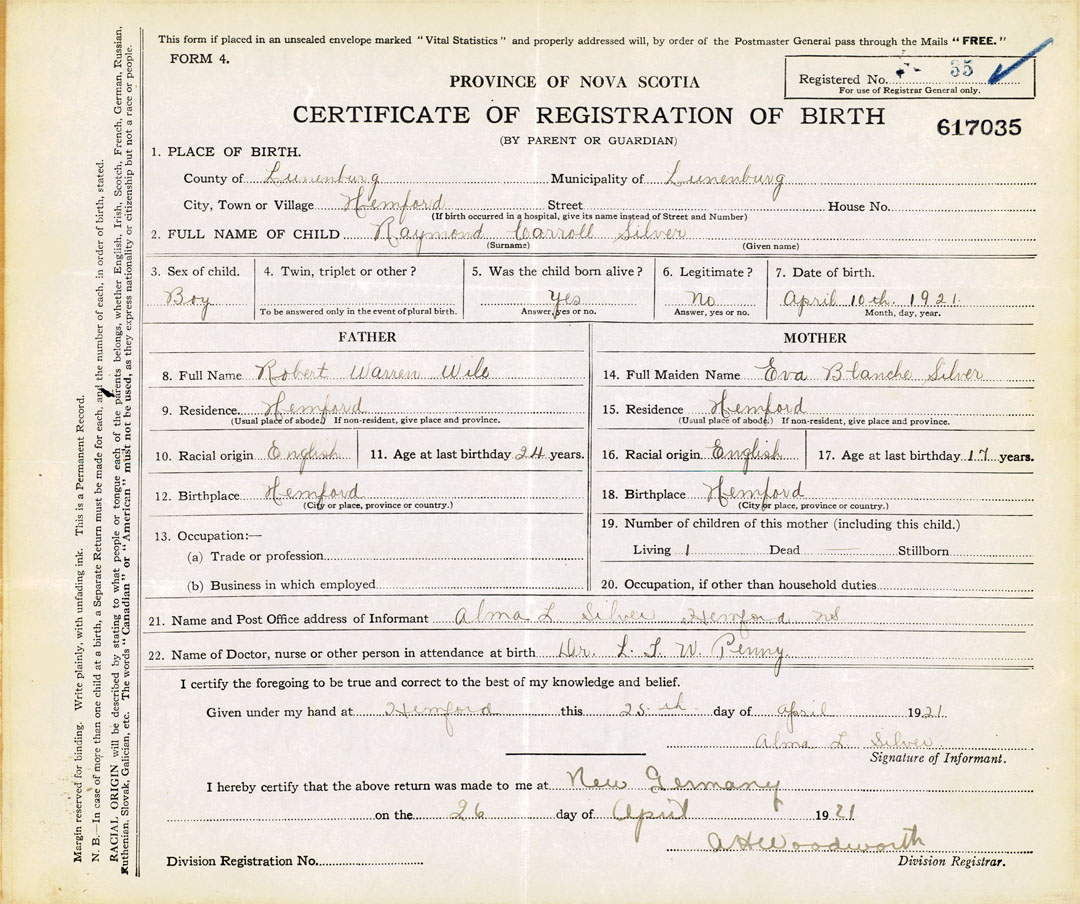 This form if placed in an unsealed envelope marked "Vital Statistics" and properly addressed will, by order of the Postmaster General pass through the Mails "FREE."
FORM 4.
Registered No. 35
For use of Registrar General only.
PROVINCE OF NOVA SCOTIA
CERTIFICATE OF REGISTRATION OF BIRTH
617035
(BY PARENT OR GUARDIAN)
1. PLACE OF BIRTH.
County of Lunenburg Municipality of Lunenburg
City, Town or Village Hemford Street House No.
(If birth occurred in a hospital, give its name instead of Street and Number)
2. FULL NAME OF CHILD Raymond Carroll Silver
(Surname) (Given name)
3. Sex of child. 4. Twin, triplet or other? 5. Was the child born alive? 6. Legitimate? 7. Date of birth.
Boy Yes No April 10th. 1921.
To be answered only in the event of plural birth. Answer, yes or no. Answer, yes or no. Month, day, year.
FATHER
8. Full Name Robert Warren Wile
9. Residence. Hemford
(Usual place of abode.) If non-resident, give place and province.
10. Racial origin English 11. Age at last birthday 24 years.
12. Birthplace Hemford
(City or place, province or country.)
13. Occupation:—
(a) Trade or profession
(b) Business in which employed
MOTHER
14. Full Maiden Name Eva Blanche Silver
15. Residence Hemford
(Usual place of abode.) If non-resident, give place and province.
16. Racial origin English 17. Age at last birthday 17 years.
18. Birthplace Hemford
(City or place, province or country.)
19. Number of children of this mother (including this child.)
Living 1 Dead Stillborn
20. Occupation, if other than household duties
21. Name and Post Office address of Informant Alma L Silver Hemford NS
22. Name of Doctor, nurse or other person in attendance at birth Dr. W. Penny
I certify the foregoing to be true and correct to the best of my knowledge and belief.
Given under my hand at Hemford this 25th day of April 1921.
Alma L Silver
Signature of Informant.
I hereby certify that the above return was made to me at New Germany
on the 26 day of April 1921
A H Woodworth
Division Registrar.
Division Registration No.
Margin reserved for binding. Write plainly, with unfading ink. This is a Permanent Record.
N. B.—In case of more than one child at a birth, a Separate Return must be made for each, and the number of each, in order of birth, stated.
RACIAL ORIGIN will be described by stating to what people or tongue each of the parents belongs, whether English, Irish, Scotch, French, German, Russian,
Ruthenian, Slovak, Galician, etc. The words "Canadian" or "American" must not be used, as they express nationality or citizenship but not a race or people.